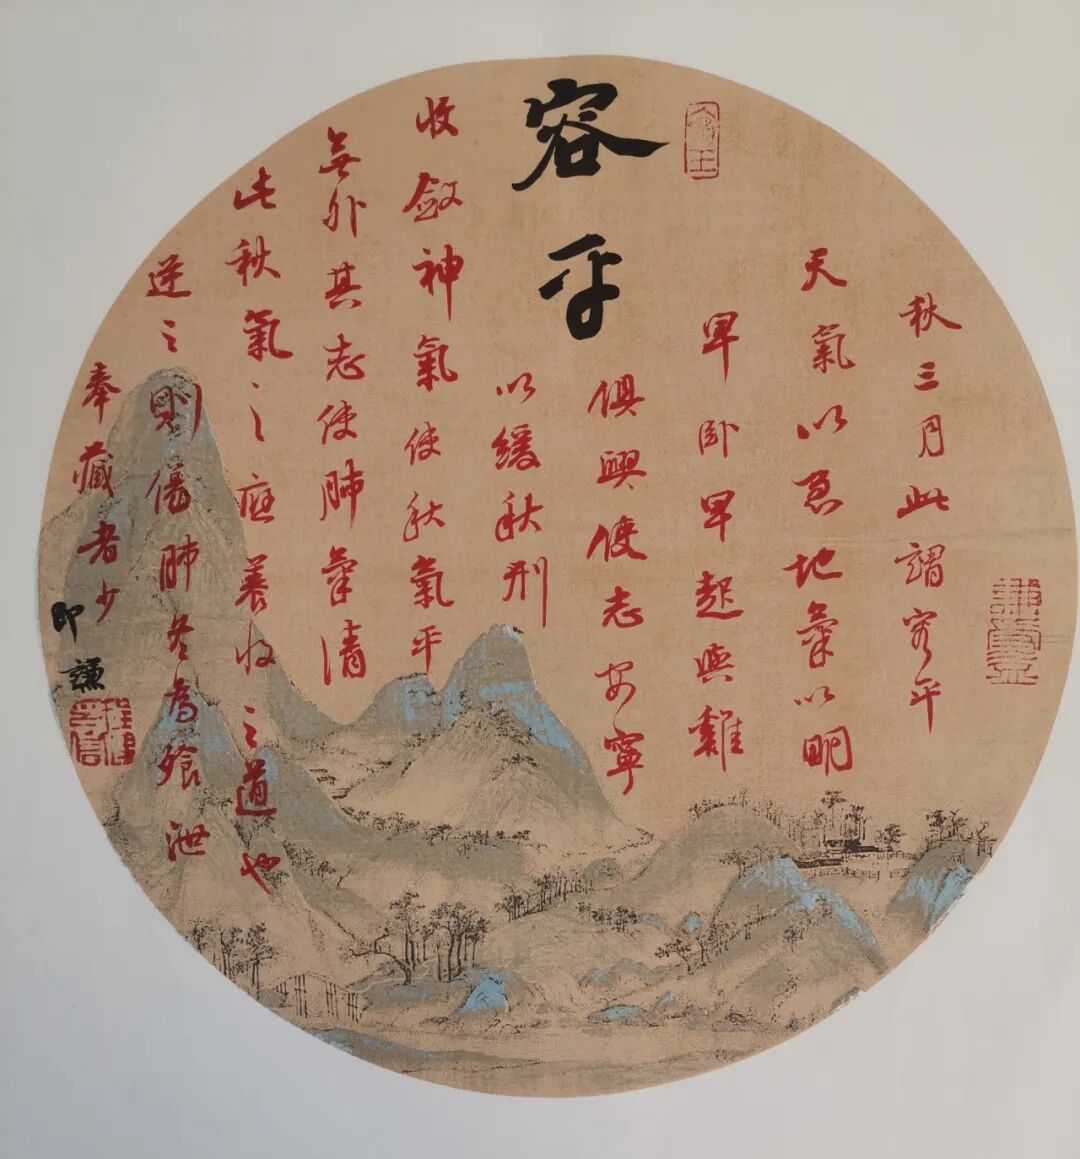 容平
秋三月此謂容平
天氣以急地氣以明
早卧早起與雞
俱興使志安寧
以緩秋刑
收斂神氣使秋氣平
無外其志使肺氣清
此秋氣之應養收之道也
逆之則傷肺冬為飱泄
奉藏者少
即謙